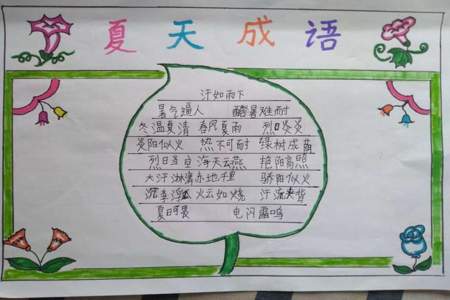 夏天成语
汗如雨下
暑气逼人 酷暑难耐
冬温夏清 春风夏雨 烈日炎炎
炎阳似火 热不可耐 绿树成荫
烈日当空 海天云燕 艳阳高照
大汗淋漓 赤地千里 骄阳似火
沉李浮瓜 火云如烧 汗流夹背
夏日可畏 电闪雷鸣